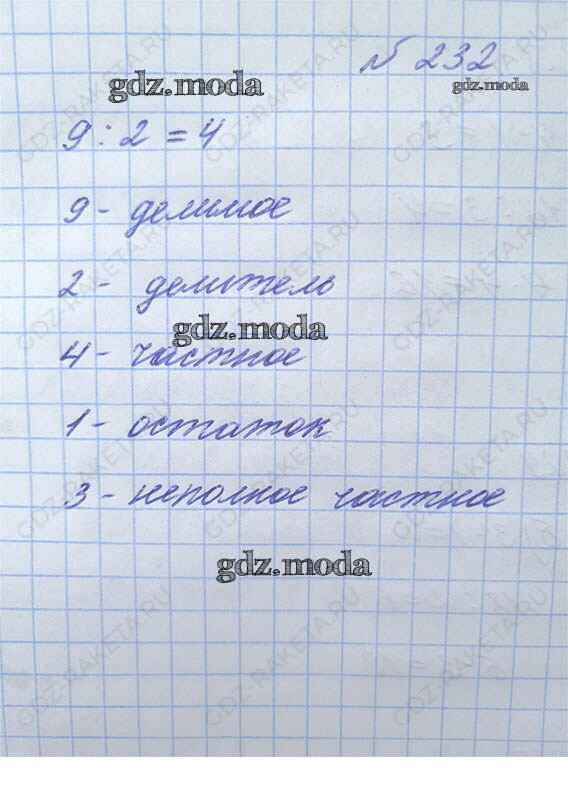 № 232
gdz.moda
gdz.moda
9 : 2 = 4
9 - делимое
2 - делитель
gdz.moda
4 - частное
1 - остаток
3 - неполное частное
gdz.moda
GDZ-RAKETA.RU
GDZ-RAKETA.RU
GDZ-RAKETA.RU
GDZ-RAKETA.RU
GDZ-RAKETA.RU
GDZ-RAKETA.RU
GDZ-RAKETA.RU
GDZ-RAKETA.RU